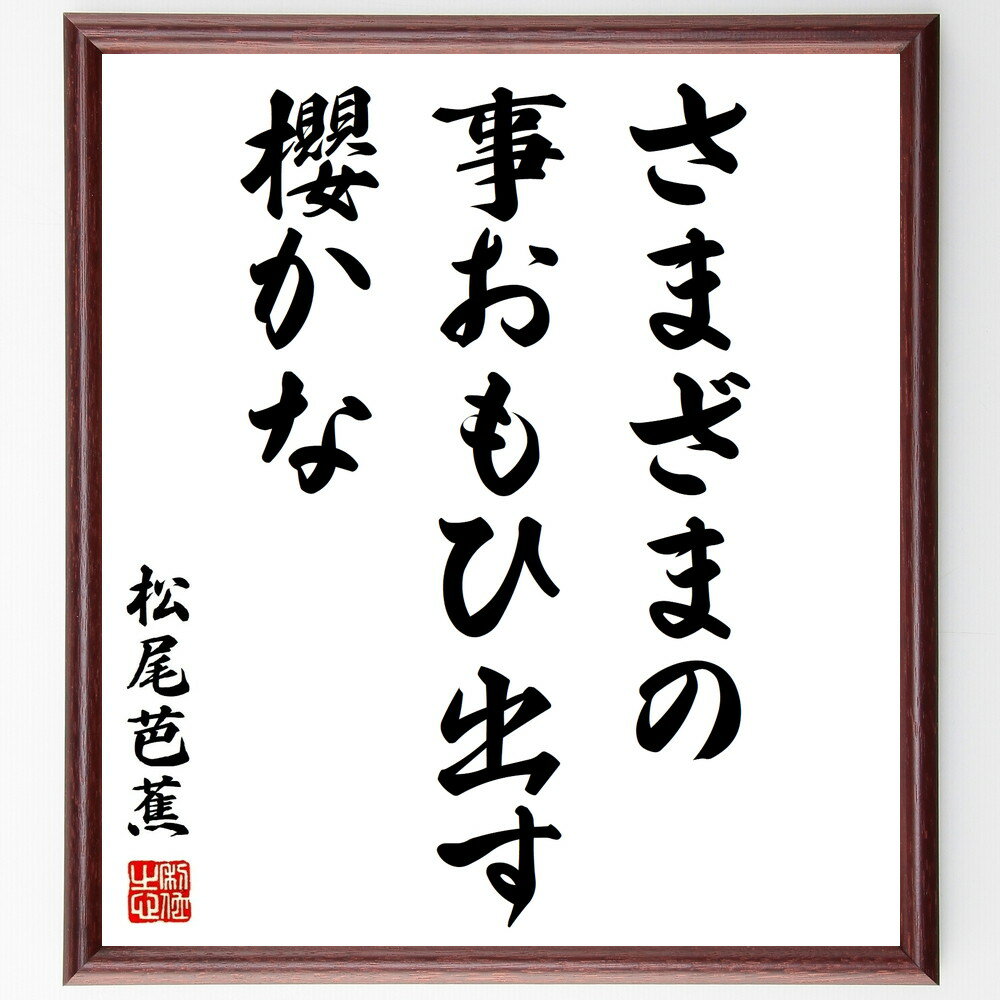 さまざまの
事おもひ出す
櫻かな
松尾芭蕉